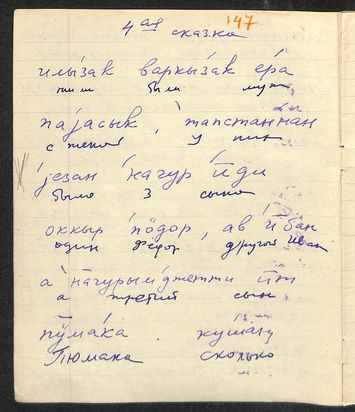 147
4ая сказка
илызак варкызак ера
жили были муж
паjасык, тапстаннан
с женой у них
jезан нагур ӣди
было 3 сына
оккыр пӧдор, ав ӣбан
один Фёдор, другой Иван
а нагурымджетти ӣт
а третий сын
пӱмака. кушаӷ
Пюмака сколько